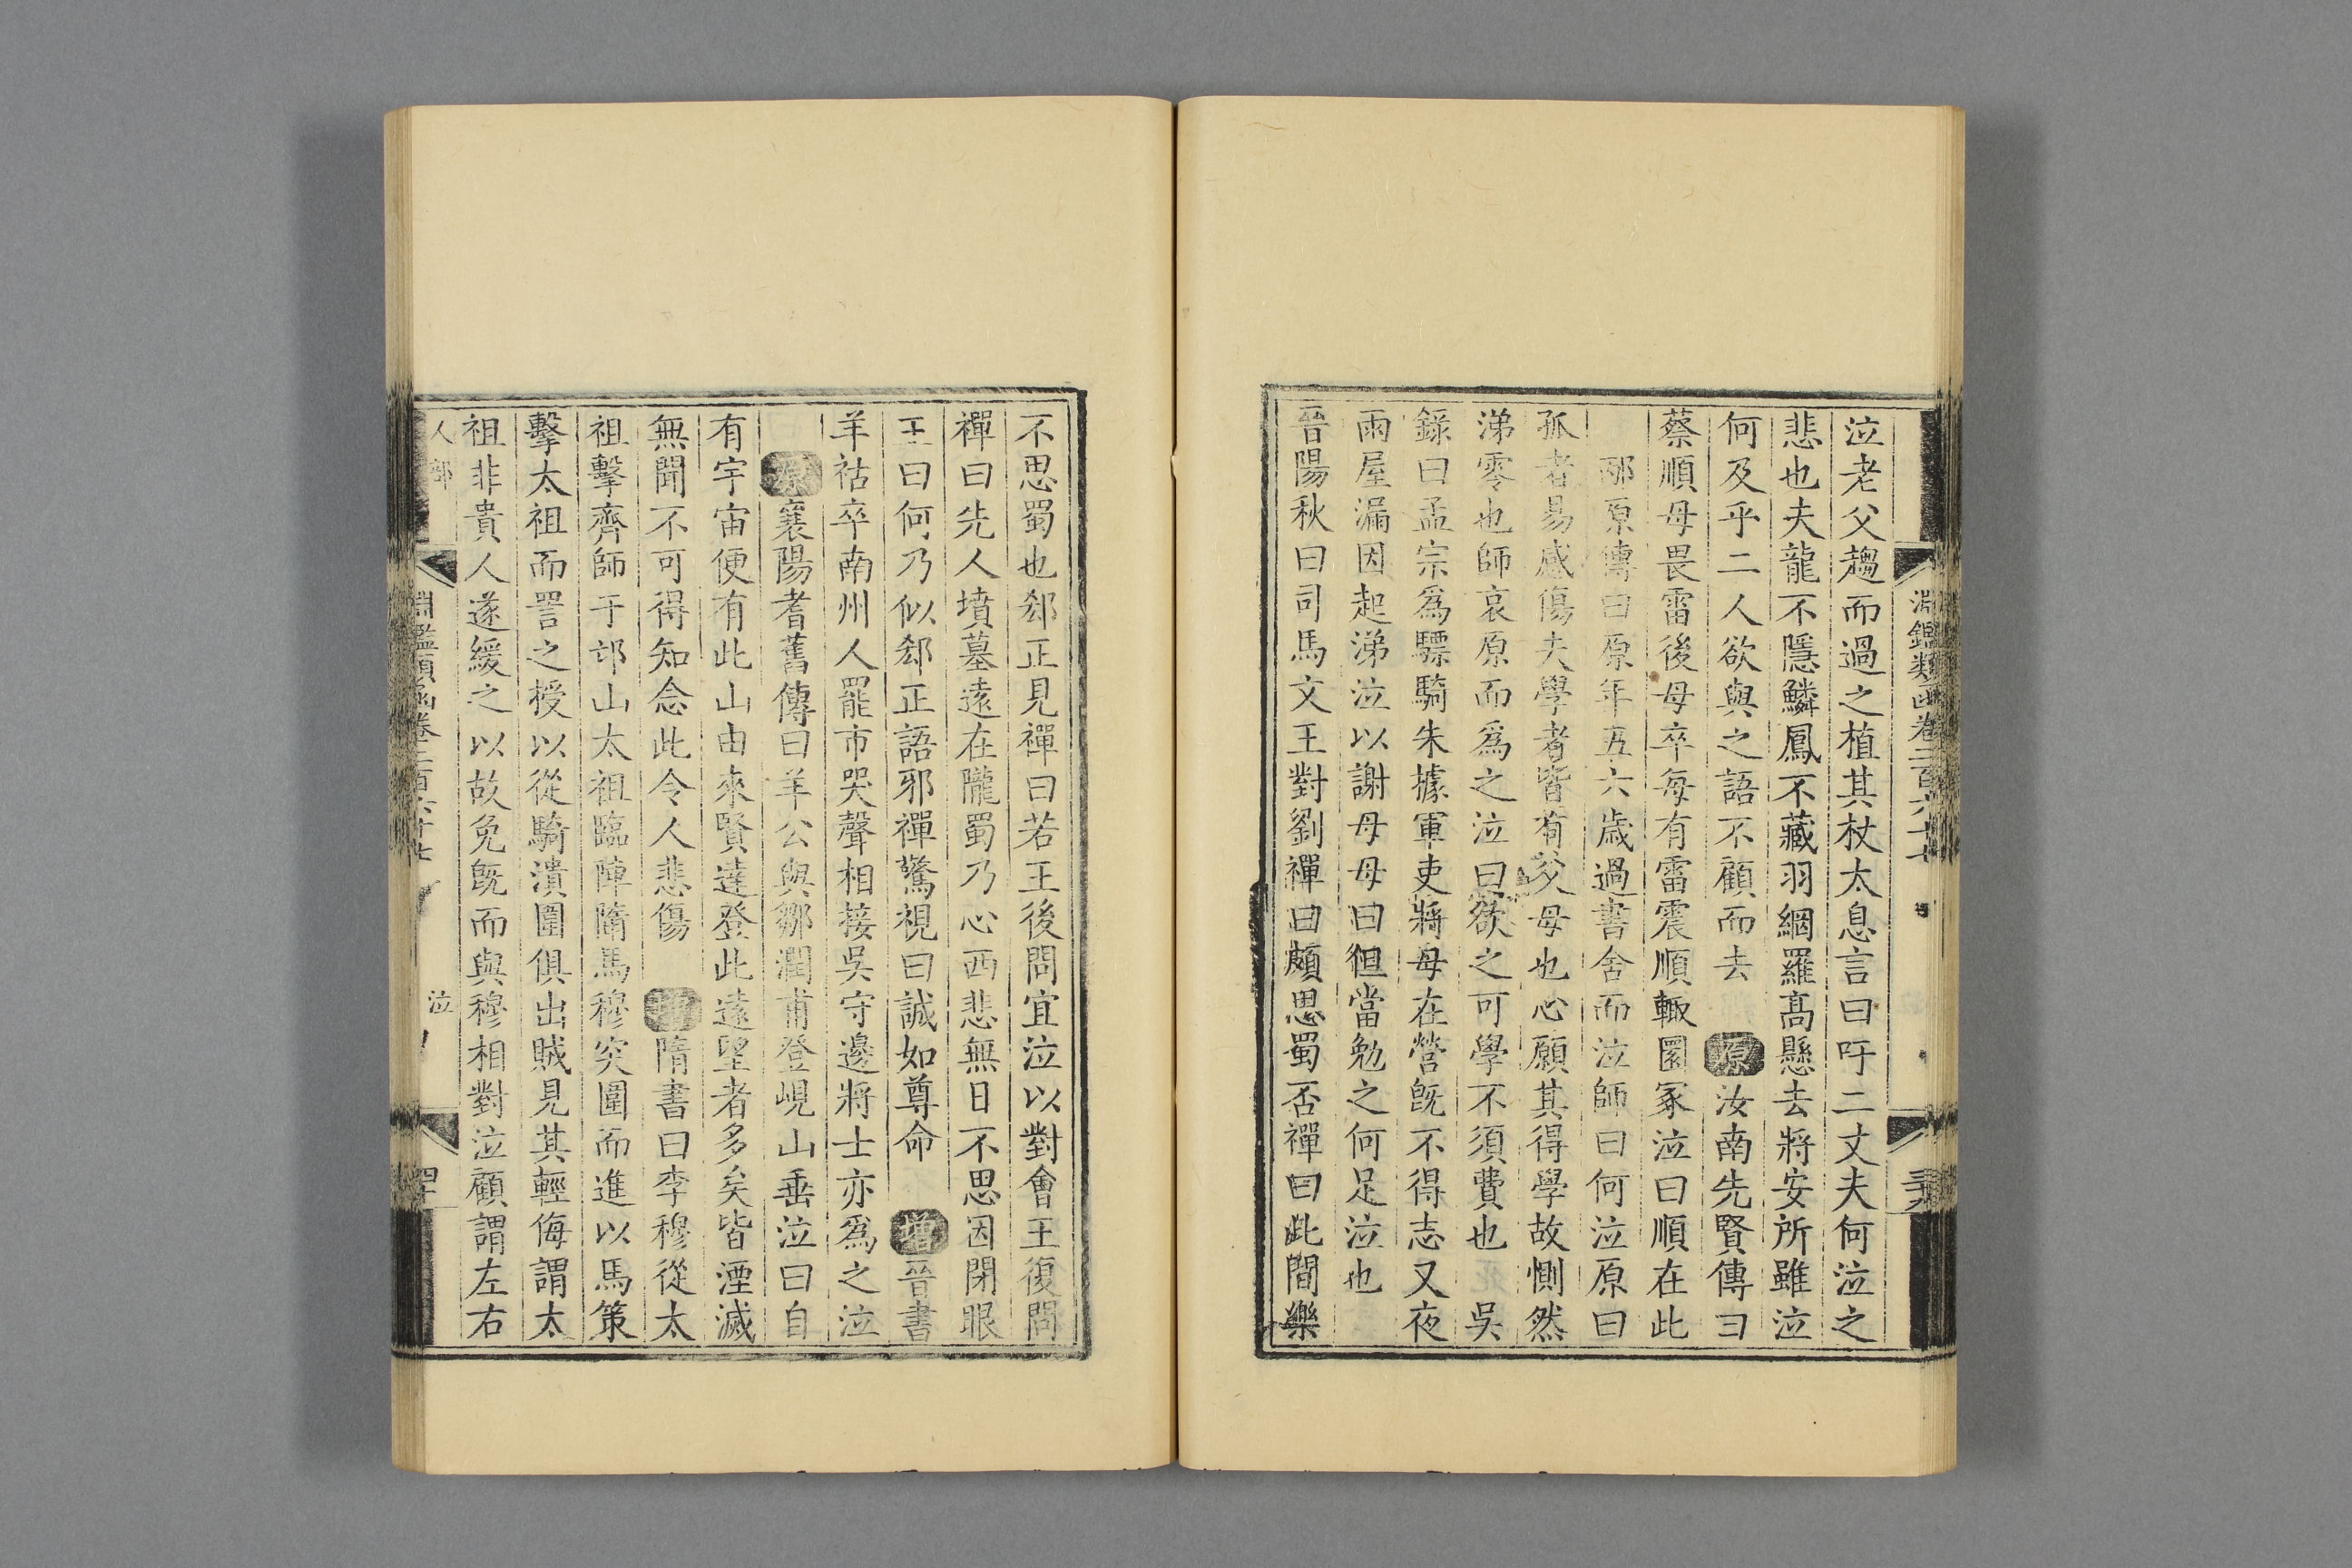 淵鑑類函卷二百六十七
泣老父趨而過之植其杖太息言曰吁二丈夫何泣之
悲也夫龍不隱鱗鳳不藏羽網羅高懸去將安所雖泣
何及乎二人欲與之語不顧而去 原汝南先賢傳曰
蔡順母畏雷後母卒每有雷震順輙圜冢泣曰順在此
邴原傳曰原年五六歲過書舍而泣師曰何泣原曰
孤者易感傷夫學者皆有父母也心願其得學故惻然
涕零也師哀原而爲之泣曰欲之可學不須費也 吳
錄曰孟宗爲驃騎朱據軍吏將母在營旣不得志又夜
雨屋漏因起涕泣以謝母母曰但當勉之何足泣也
晉陽秋曰司馬文王對劉禪曰頗思蜀否禪曰此間樂
不思蜀也郄正見禪曰若王後問宜泣以對會王復問
禪曰先人墳墓遠在隴蜀乃心西悲無日不思因閉眼
王曰何乃似郄正語邪禪驚視曰誠如尊命 增晉書
羊祜卒南州人罷市哭聲相接吳守邊將士亦爲之泣
原襄陽耆舊傳曰羊公與鄒潤甫登峴山垂泣曰自
有宇宙便有此山由來賢達登此遠望者多矣皆湮滅
無聞不可得知念此令人悲傷 增隋書曰李穆從太
祖擊齊師于邙山太祖臨陣隋馬穆突圍而進以馬策
擊太祖而詈之授以從騎潰圍俱出賊見其輕侮謂太
祖非貴人遂緩之以故免旣而與穆相對泣顧謂左右
人部
淵鑑類函卷二百六十七
泣